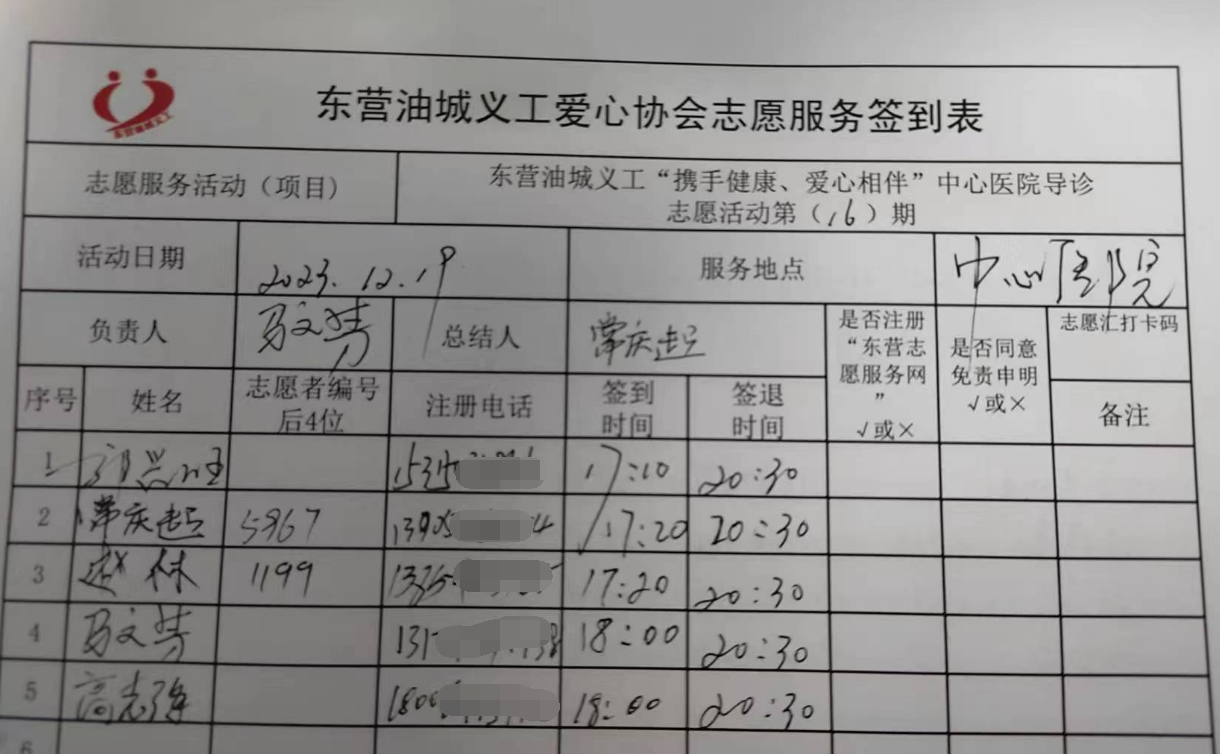 东营油城义工
东营油城义工爱心协会志愿服务签到表
志愿服务活动（项目）
东营油城义工“携手健康、爱心相伴”中心医院导诊
志愿活动第（16）期
活动日期
2023.12.19
服务地点
中心医院
负责人
马文芳
总结人
常庆起
是否注册
“东营志
愿服务网
”
√或×
是否同意
免责申明
√或×
志愿汇打卡码
备注
序号
姓名
志愿者编号
后4位
注册电话
签到
时间
签退
时间
1
17:10
20:30
2
常庆起
5967
17:20
20:30
3
赵林
1199
17:20
20:30
4
马文芳
18:00
20:30
5
高志强
18:00
20:30
6